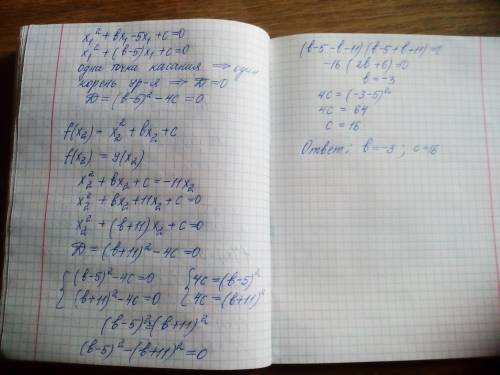 x₁² + вx₁ - 5x₁ + c = 0
x₁² + (в-5)x₁ + c = 0
одна точка касания ⟹ один
корень ур-я ⟹ D = 0
D = (в-5)² - 4c = 0
f(x₂) = x₂² + вx₂ + c
f(x₂) = y(x₂)
x₂² + вx₂ + c = -11x₂
x₂² + вx₂ + 11x₂ + c = 0
x₂² + (в+11)x₂ + c = 0
D = (в+11)² - 4c = 0
{(в-5)² - 4c = 0 {4c = (в-5)²
{(в+11)² - 4c = 0 {4c = (в+11)²
(в-5)² = (в+11)²
(в-5)² - (в+11)² = 0
(в-5-в-11)(в-5+в+11) = 0
-16(2в+6) = 0
в = -3
4c = (-3-5)²
4c = 64
c = 16
Ответ: в = -3; c = 16